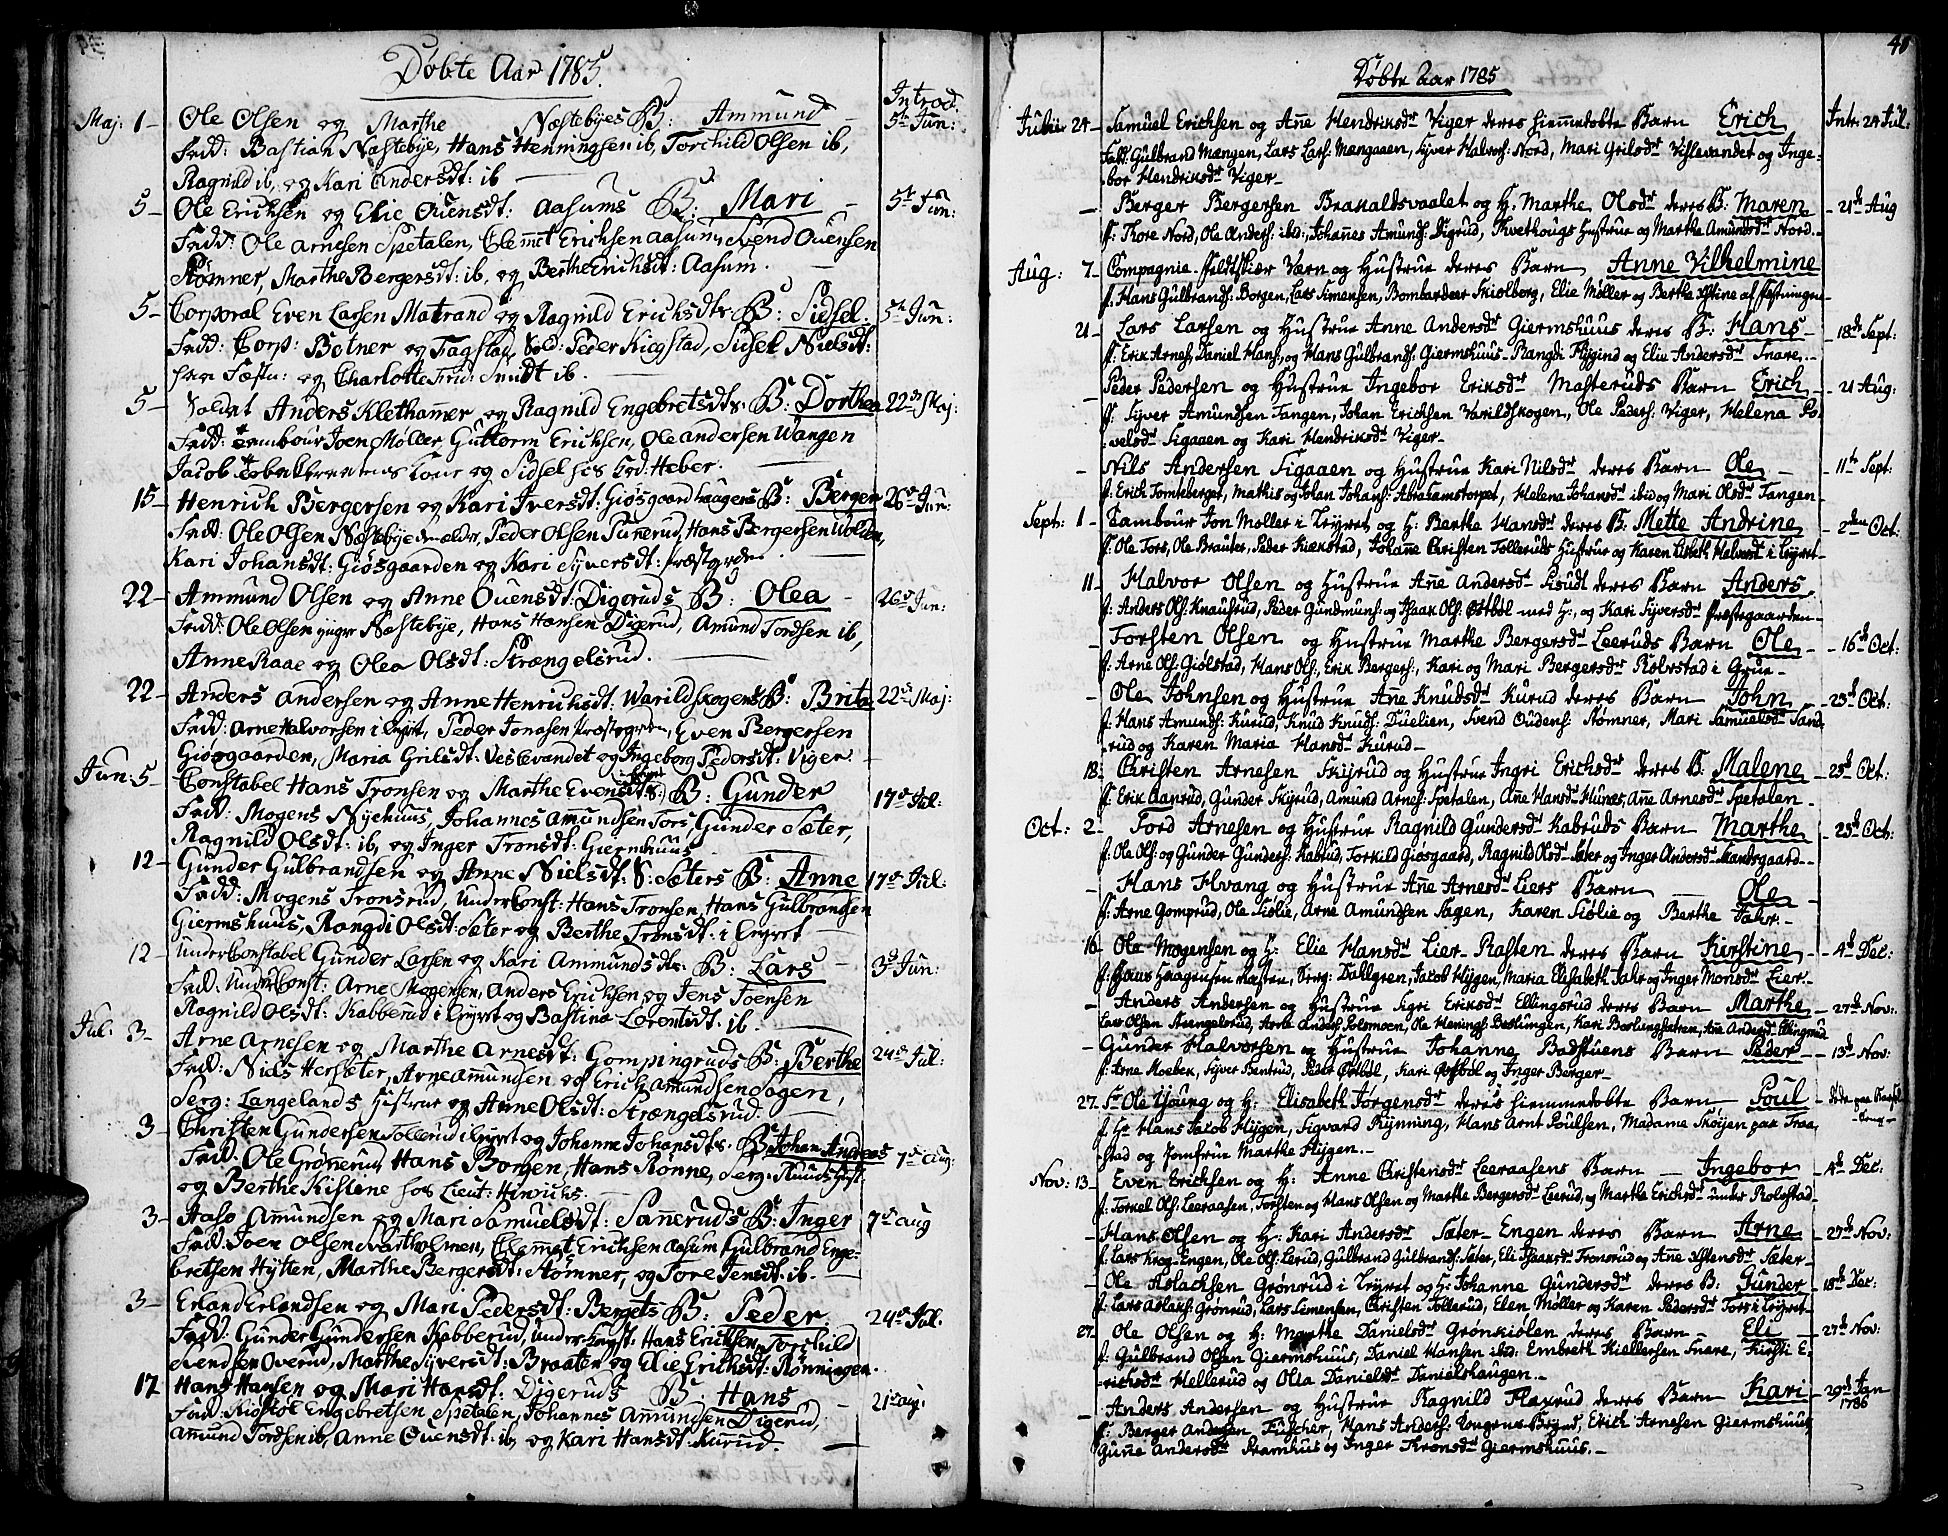 Døbte Aar 1785.
Introd.
Maj: 1 - Ole Olsen og Marthe Næstebyes B: Ammund - 5te Jun:
Fadd: Bastian Næstebye, Hans Henningsen ib, Torchild Olsen ib,
Ragnild ib, og Kari Andersdt: ib
5 - Ole Ericksen og Elie Ouensdt: Aasums B: Mari - 5te Jun:
Fadd: Ole Arnesen Spetalen, Clemet Ericksen Aasum, Svend Ouensen
Stømner, Marthe Bergersdt: ib, og Berthe Erichsdt: Aasum.
5 - Corporal Even Larsen Matrand og Ragnild Ericksdtr. B: Sidsel. 5te Jun:
Fadd: Corp: Botner og Fagstad, Sold: Peder Kiegstad, Sidsel Nielsdt:
paa Fæstn: og Charlotte Frid: Smidt ib.
5 - Soldat Anders Klethamer og Ragnild Engebretsdtr. B: Dorthea 22de Maj:
Fadd: Tambour Joen Møller, Guttorm Ericksen, Ole Andersen Wangen
Jacob Kone og Sidsel hos Heber.
15 - Henrich Bergersen og Kari Iversdt: Giøsgaardhaugens B: Berger 26de Jun:
Fadd: Ole Olsen Næstebye ælder, Peder Olsen Tunerud, Hans Bergersen Wolden,
Kari Johansdt: Giøsgaarden og Kari Syversdt: Præstgrden.
22 - Ammund Olsen og Anne Ouensdt: Digeruds B: Olea - 26de Jun:
Fadd: Ole Olsen yngre Næstebye, Hans Hansen Digerud, Amund Tordsen ib,
Anne Raae og Olea Olsdt: Strængelsrud.
22 - Anders Andersen og Anne Henrichsdt: Warildskogens B: Brita 22de Maj:
Fadd: Arne Halvorsen i Leyret, Peder Jonasen Præstegrden, Even Bergersen
Giøsgaarden, Maria Grilsdt: Vestevandet og Ingeborg Pedersdt: Viger.
Jun: 5 - Constabel Hans Tronsen og Marthe Evensdtr: B: Gunder 17de Jul:
Fadd: Mogens Nyehuus, Johannes Amundsen Tors, Gunder Sæter,
Ragnild Olsdt: ib, og Inger Tronsdt: Giermshuus
12 - Gunder Gulbrandsen og Anne Nielsdt: S: Sæters B: Anne 17de Jul:
Fadd: Mogens Tronsrud, UnderConst: Hans Tronsen, Hans Gulbrandsen
Giermshuus, Rangdi Olsdt: Sæter og Berthe Tronsdt: i Leyret
12 - UnderConstabel Gunder Larsen og Kari Ammundsdtr. B: Lars 3de Jun:
Fadd: UnderConst: Arne Mogensen, Anders Ericksen og Jens Joensen
Ragnild Olsdt: Kabberud i Leyret og Bastina Lorentsdt: ib.
Jul: 3 - Arne Arnesen og Marthe Arnesdt: Gompingruds B: Berthe 24de Jul:
Fadd: Niels Hersæter, Arne Amundsen og Erich Amundsen Sagen,
Serg: Langelands Hustrue og Anne Olsdt: Strængelsrud.
3 - Christen Gundersen Tollerud i Leyret og Johanne Johansdtr. B: Johan Andreas 7de Aug:
Fadd: Ole Grønnerud, Hans Borgen, Hans Rønne, Serg: Ruuds Hust:
og Berthe Kistine hos Lieut: Hinrichs.
3 - Aase Amundsen og Mari Samuelsdt: Sanneruds B: Inger 7de Aug
Fadd: Joen Olsen Svartholmen, Clemet Ericksen Aasum Gulbrand Enge-
bretsen Hytten, Marthe Bergersdt: Stømner, og Tore Jensdt: ib.
3 - Erland Erlandsen og Mari Pedersdt: Bergets B: Peder 24de Jul.
Fadd: Gunder Gundersen Kabberud, Under Const: Hans Ericksen, Torchild
Svendsen Overud, Marthe Syversdt: Braaten og Elie Ericksdt: Rønningen.
17 Hans Hansen og Mari Hansdt: Digeruds B: Hans - 21de Aug:
Fadd: Kiøstol Engebretsen Spetalen, Johannes Amundsen Digerud,
Amund Tordsen ib, Anne Ouensdt: ib, og Kari Hansdt: Kurud.
48
Døbte Aar 1785
Julii 24 - Samuel Erichsen og Añe Hendriksdr Viger deres hiemmedøbte Barn Erich Intr: 24 Jul:
Fad: Gulbrand Mængen, Lars Lars: Mængaaen, Syver Halvors: Nord, Mari Grilsdr Vislevandet og Inge-
bor Hendriksdr Viger -
- Berger Bergersen Brakaldsvaalet og H. Marthe Olsdr deres B: Maren - 21de Aug
f: Thore Nord, Ole Anders: ibid, Johañes Amunds: Digrud, Tvethougs Hustrue og Marthe Amundsdr Nord. -
Aug: 7 - Compagnie-FeldtskiærVærn og Hustrue deres Barn Anne Vilhelmine
f: Hans Gulbrands: Borgen, Lars Simensen, Bombardeer Skiolberg, Elie Møller og Berthe Xstine af Festningen -
21 - Lars Larsen og Hustrue Anne Andersdr Giermshuus deres B: Hans - 18de Sept:
f: Erik Arnes: Daniel Hans: og Hans Gulbrands: Giermshuus - Rangdi Flygind og Elie Andersdr Snare. -
Peder Pedersen og Hustrue Ingebor Eriksdr Masteruds Barn Erich - 21 Aug:
f: Syver Amundsen Tangen, Johan Erichsen Varildskogen, Ole Peders: Viger, Helena Po-
velsdr Sigaaen og Kari Hendriksdr Viger -
- Nils Andersen Sigaaen og Hustrue Kari Nilsdr deres Barn Ole - 11te Sept:
f: Erich Tomteberget, Mathis og Johan Johans: Abrahamstorpet, Helena Johansdr ibid og Mari Olsdr Tangen -
Sept: 1 - Tambour Jon Møller i Leyret og H: Berthe Hansdr deres B: Mette Andrine - 2den Oct:
f: Ole Tors, Ole Brauter, Peder Kiækstad, Johañe Christen Tolleruds Hustrue og Karen Lisbeth Halvorsdr i Leyret -
11 - Halvor Olsen og Hustrue Añe Andersdr Sisudt deres Barn Anders
f: Anders Ols: Knausrud, Peder Gundmuns: og Isaak Ols: Østbøl med H:, og Kari Syversdr Præstegaarden -
- Torsten Olsen og Hustrue Marthe Bergersdr Leeruds Barn Ole - 16de Oct:
f: Arne Ols: Giølstad, Hans Ols:, Erik Bergers:, Kari og Mari Bergersdr Rolvstad i Grue -
- Ole Johnsen og Hustrue Añe Knudsdr Kurud deres Barn John - 23de Oct:
f: Hans Amunds: Kurud, Knud Knuds: Duelien, Svend Oudens: Stømner, Mari Samuelsdr Sand-
rud og Karen Maria Hansdr Kurud -
18 - Christen Arnesen Skyrud og Hustrue Ingri Erichsdr deres B: Malene - 25de Oct:
f: Erik Aanrud, Gunder Skyrud, Amund Arnes: Spetalen, Añe Hansdr Hunæs, Añe Arnesdr Spetalen -
Oct: 2 - Tord Arnesen og Hustrue Ragnild Gundersdr Kabruds Barn Marthe - 23de Oct:
f: Ole Ols: og Gunder Gunders: Kabrud, Torkild Giøsgaard, Ragnild Olsdr Sæter og Inger Andersdr Skandsgaard -
- Hans Kvang og Hustrue Añe Arnesdr Liers Barn Ole -
f: Arne Gomprud, Ole Siølie, Arne Amundsen Sagen, Karen Siølie og Berthe Fahr. -
16 - Ole Mogensen og H: Elie Hansdr Lier-Rasten deres Barn Kirstine - 4de Dec:
f: Haagensen Rasten, Serg: Dallgren, Jacob Hygen, Maria Elisabeth Fahr og Inger Monsdr Lier -
- Anders Andersen og Hustrue Sigri Eriksdr Ellingsrud deres Barn Marthe - 27de Nov:
Lars Olsen Strengelsrud, Arne Anders: Solomoen, Ole Hennings: Beslungen, Kari Beslungsætren, Añe Andersdr Ellingsrud
- Gunder Halvorsen og Hustrue Johanne Badstuens Barn Peder - 13de Nov:
f: Arne Moebek, Syver Bentrud, Peder Østbøl, Kari Østbøl og Inger Berger -
27 - Sr Ole Young og H: Elisabeth Jørgensdr deres hiemmedøbte Barn Poul -
f: Hr Hans Jacob Hygen, Sigvard Rynning, Hans Arnt Poulsen, Madame Skøyen paa Fraa-
stad og Jomfrue Marthe Hygen. -
Nov: 13 - Even Erichsen og H: Anne Christensdr Leeraasens Barn - Ingebor - 4de Dec:
f: Torkel Ols: Leeraasen, Torsten og Hans Olsen og Marthe Bergersdr Leerud, og Marthe Erichsdr under Rolvstad -
- Hans Olsen og H: Kari Andersdr Sæter-Engen deres Barn Arne - 27de Nov:
f: Lars Krog-Engen, Ole Ols: Lerud, Gulbrand Gulbrands: Sæter, Eli Isaaxdr Tronsrud og Añe Xstensdr Sæter -
- Ole Aslachsen Grønrud i Leyret og H: Johanne Gundersdr deres B: Gunder - 18de Dec:
f: Lars Aslaks: Grønrud, Lars Simensen, Christen Tollerud, Elen Møller og Karen Pedersdr Tors i Leyret -
27 - Ole Olsen og H: Marthe Danielsdr Grønkiølen deres Barn - Eli - 27de Nov:
f: Gulbrand Olsen Giermshuus, Daniel Hansen ibid: Embreth Kiellersen Snare, Kirsti E-
richsdr Hellerud og Olia Danielsdr Danielshaugen. -
- Anders Andersen og Hustrue Ragnild Flaxrud deres Barn Kari - 29de Jan 1786
f: Berger Andersen Fuscher, Hans Anders: , Erich Arnesen Giermshuus,
Guñe Andersdr Pramhus og Inger Tronsdr Giermshuus. -